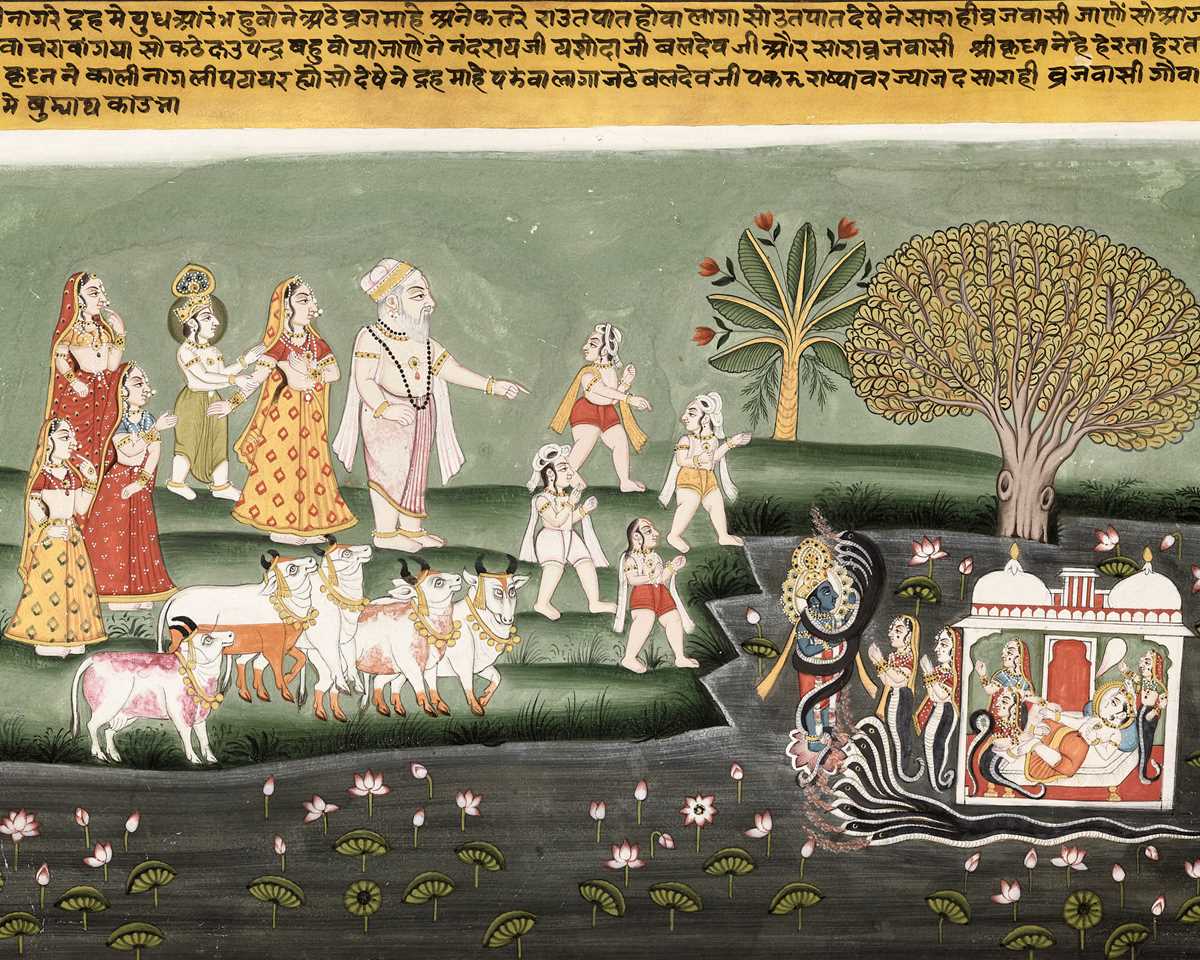 नागरे द्रह मे युध आरंभ हुवो ने अठे व्रज माहे अनेक तरे रा उतपात होवा लागा सो उतपात देषेने सारा ही व्रजवासी जाणों सो आज
सो कठे नंदरायजी यशोदाजी बलदेवजी और सारा व्रजवासी श्री कृष्ण ने हेरता हेरता
कृष्ण ने काली नाग लीपटय रह्यो सो देषेने द्रह माहे पडवा लागा जठे बलदेवजी पकड राष्या वर ज्या जद सारा ही व्रजवासी
मे